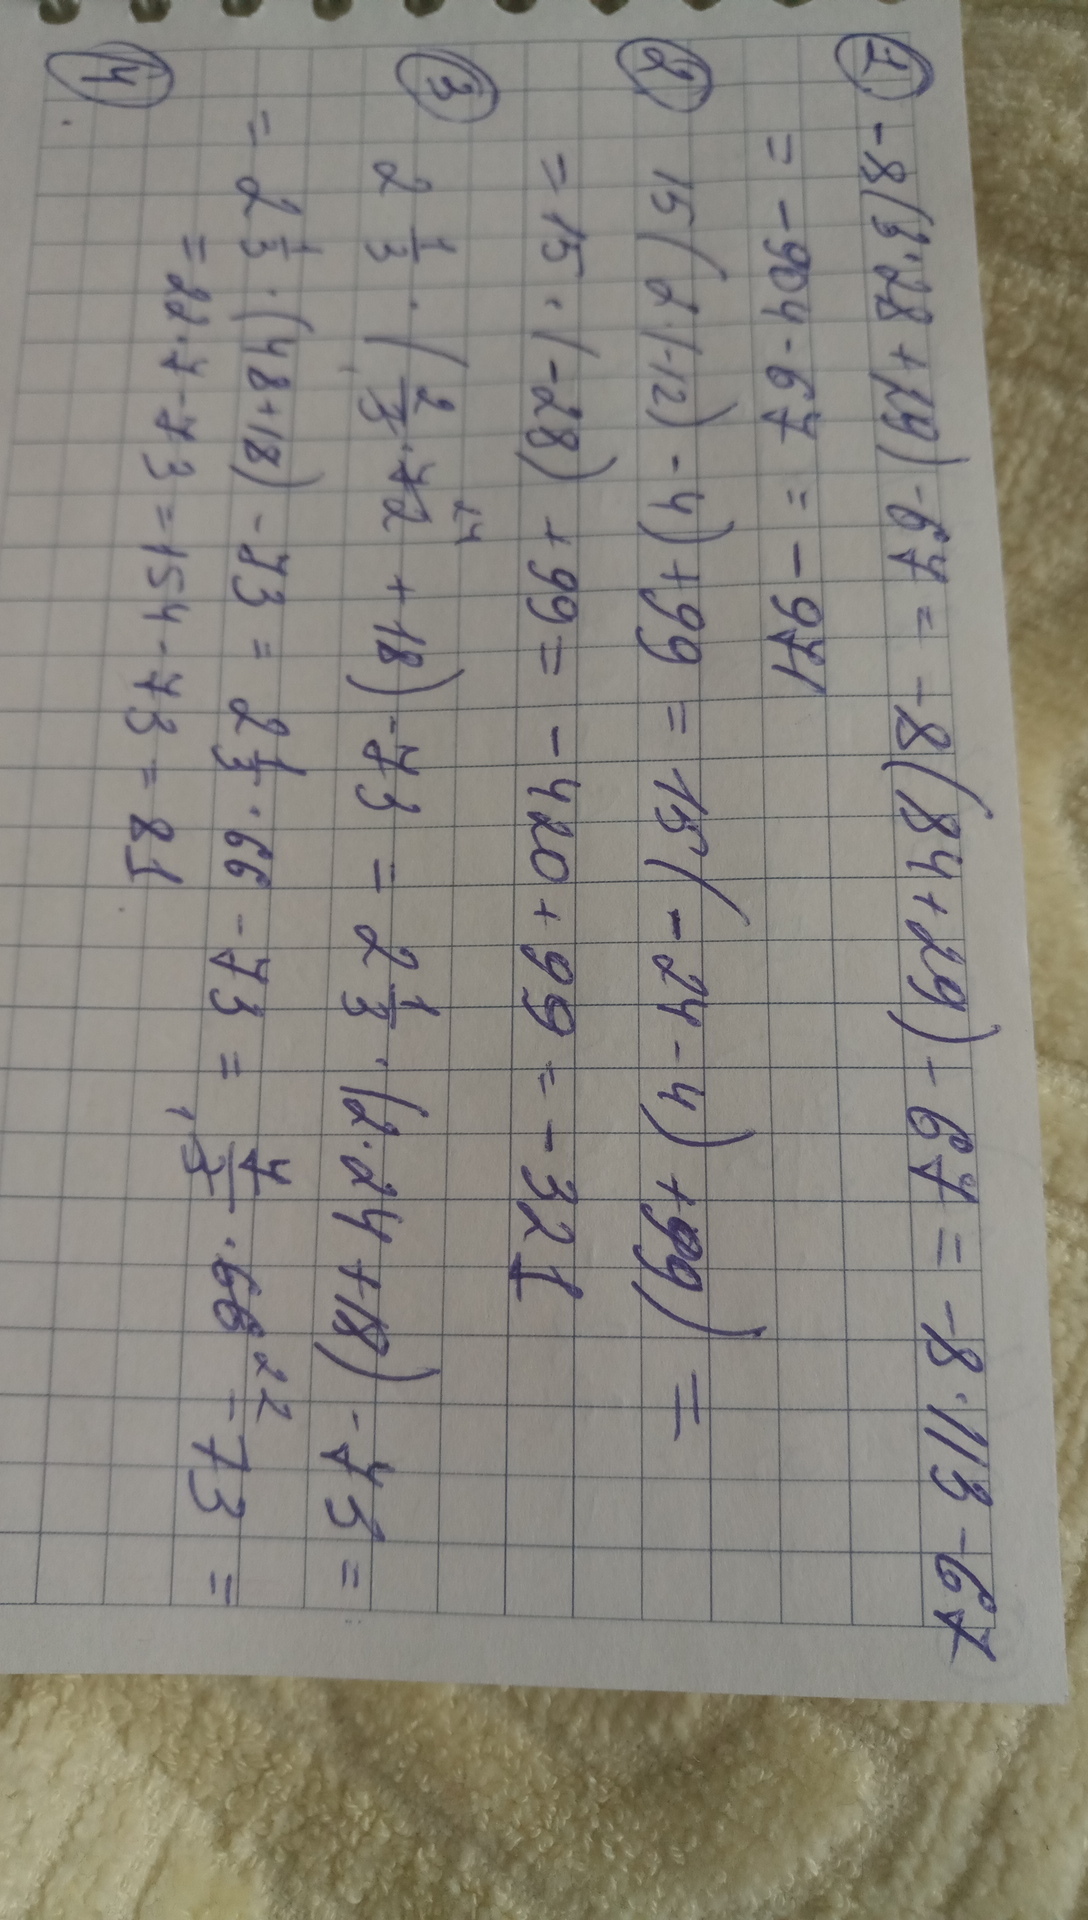 ① -8(3·28 + 29) - 67 = -8(84 + 29) - 67 = -8·113 - 67
= -904 - 67 = -971
② 15(2·(-12) - 4) + 99 = 15(-24 - 4) + 99) =
= 15·(-28) + 99 = -420 + 99 = -321
③ 2 1/3 · (2/3 · 72 24 + 18) - 73 = 2 1/3 · (2·24 + 18) - 73 =
= 2 1/3 · (48 + 18) - 73 = 2 1/3 · 66 - 73 = 7/3 1 · 66 22 - 73 =
= 22·7 - 73 = 154 - 73 = 81
④